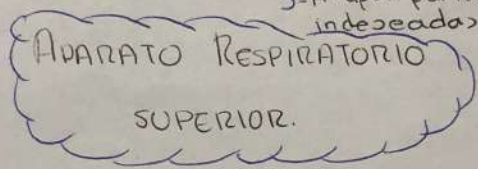 indeseadas
APARATO RESPIRATORIO
SUPERIOR.